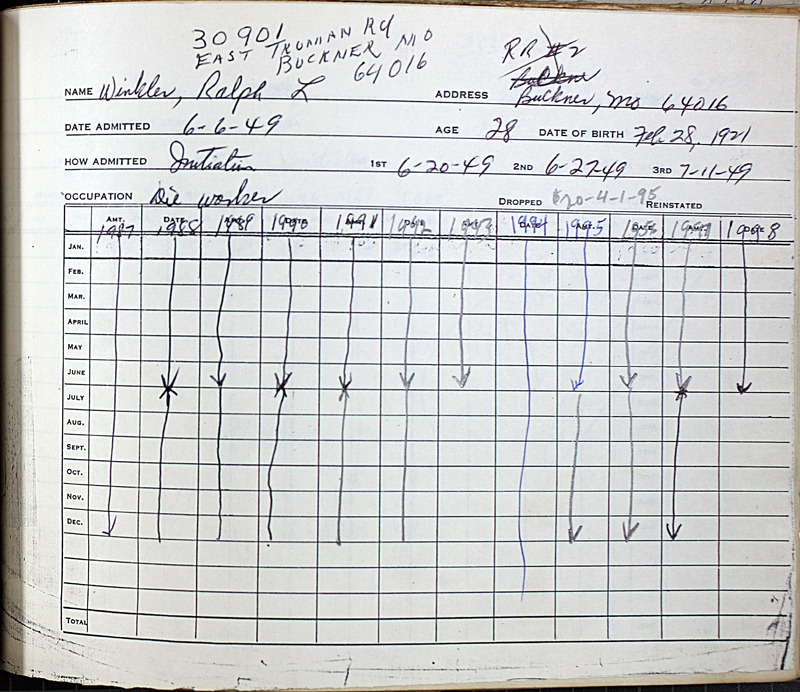 30901
EAST TRUMAN RD
BUCKNER MO
64016
RR #2
Buckner
NAME Winkler, Ralph L ADDRESS Buckner, Mo 64016
DATE ADMITTED 6-6-49 AGE 28 DATE OF BIRTH Feb 28, 1921
HOW ADMITTED Initiation 1ST 6-20-49 2ND 6-27-49 3RD 7-11-49
OCCUPATION Die worker DROPPED $20-4-1-95 REINSTATED
AMT. DATE AMT. DATE AMT. DATE AMT. DATE AMT. DATE AMT. DATE
1987 1988 1989 1990 1991 1992 1993 1994 1995 1998
JAN.
FEB.
MAR.
APRIL
MAY
JUNE
JULY
AUG.
SEPT.
OCT.
NOV.
DEC.
TOTAL